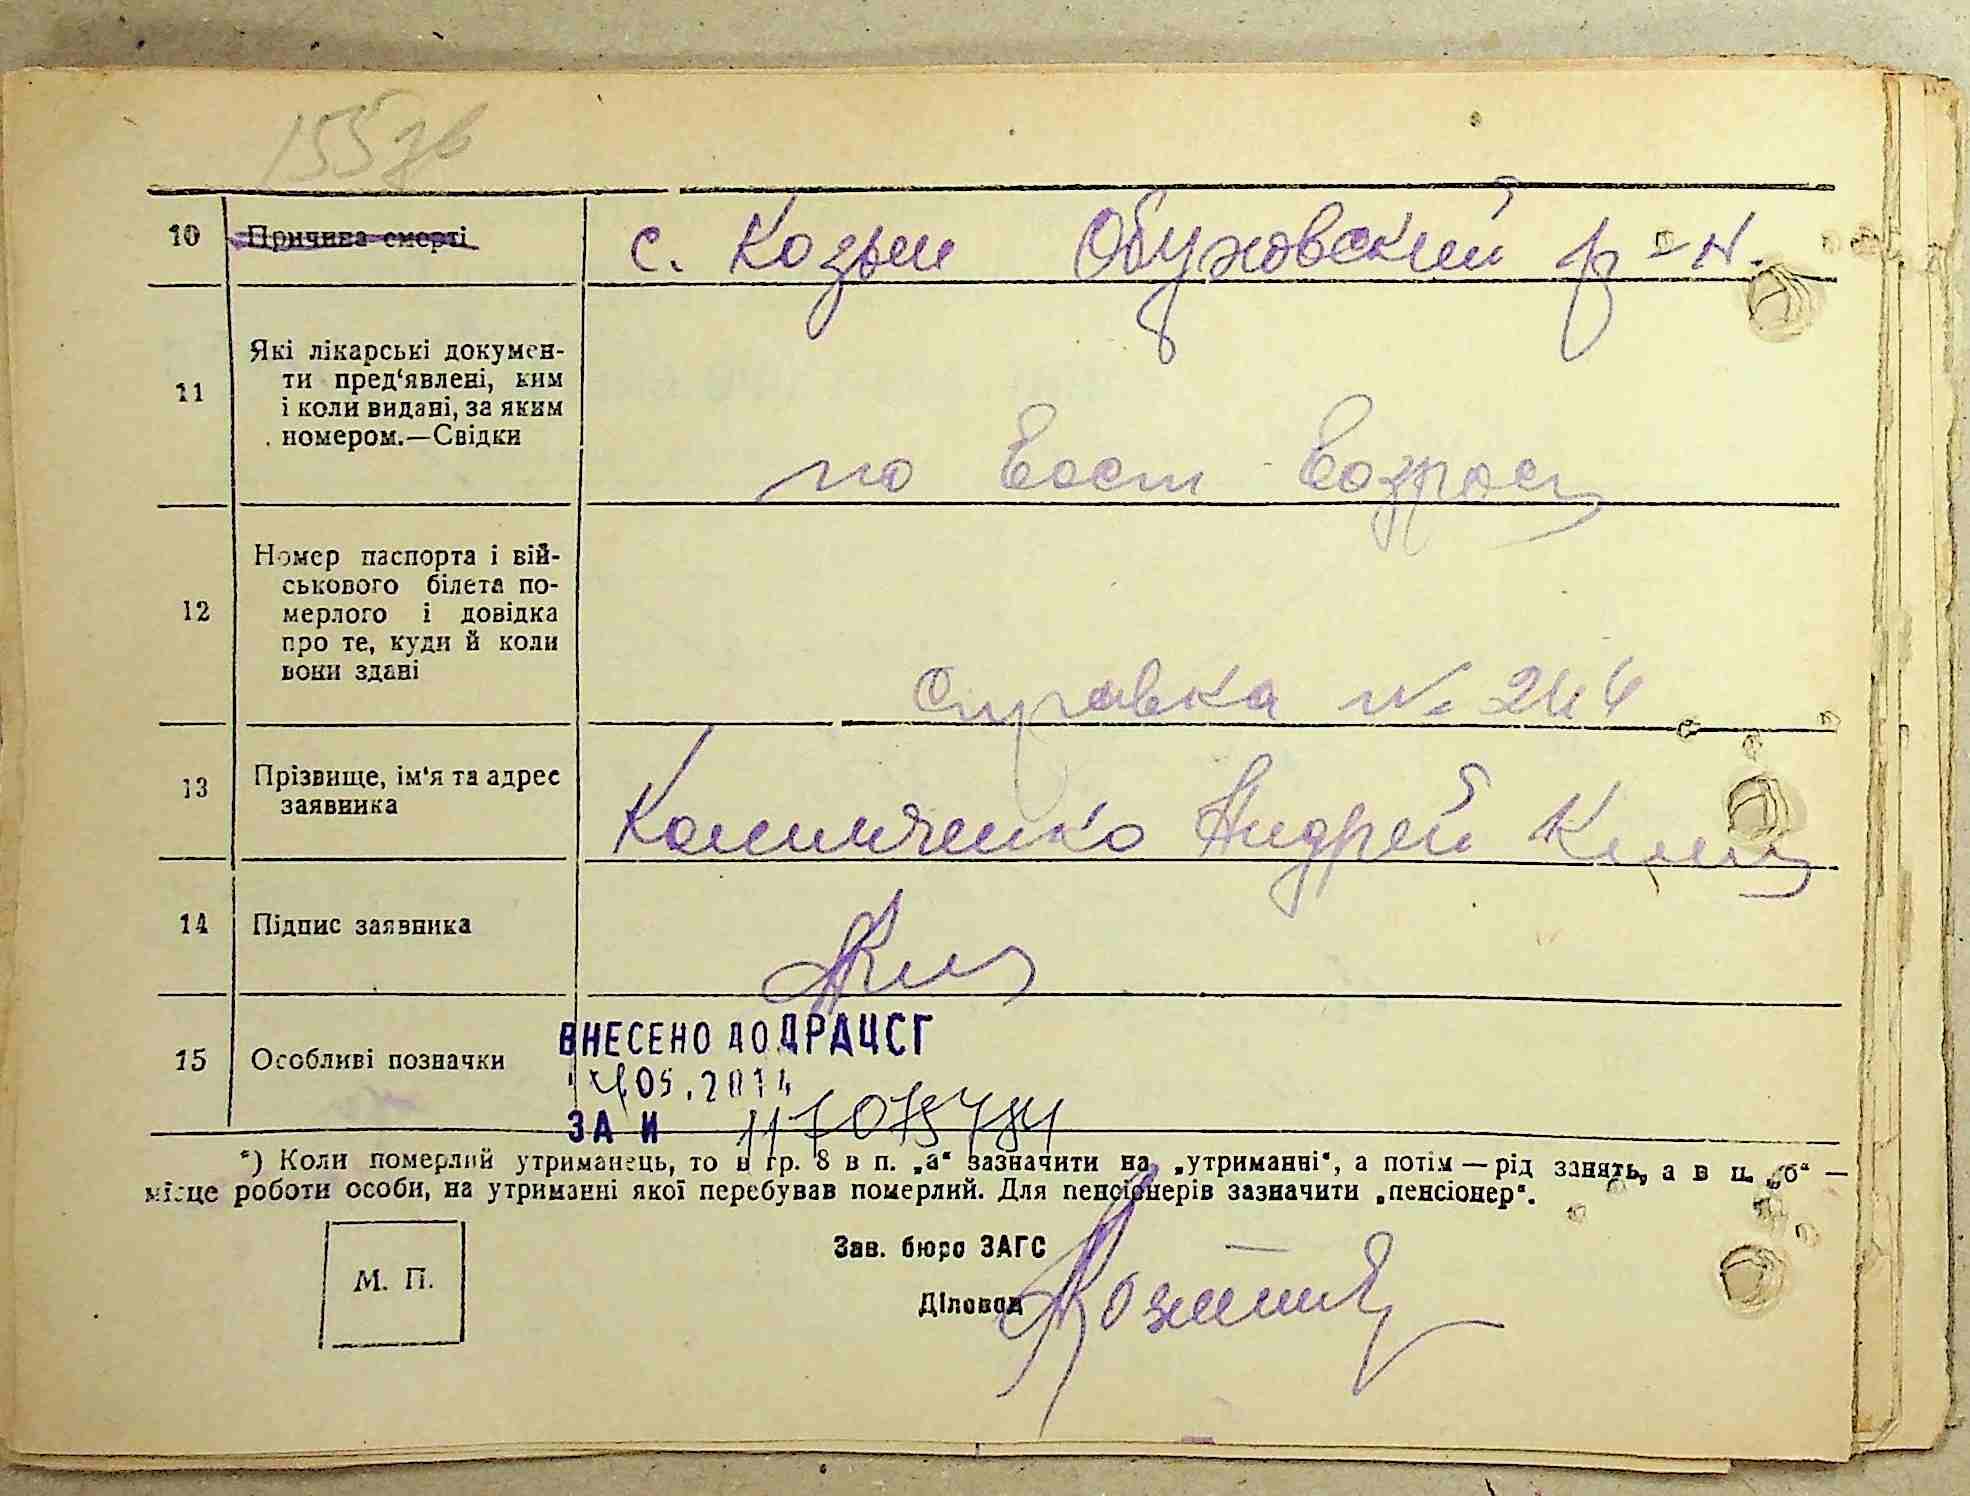 155 зв
10 Причина смерті с. Козын Обуховский р-н.
11 Які лікарські докумен-
ти пред‘явлені, ким
і коли видані, за яким
номером.—Свідки
по возрост
12 Номер паспорта і вій-
ськового білета по-
мерлого і довідка
про те, куди й коли
вони здані
Справка №
13 Прізвище, ім‘я та адрес
заявника
Андрей
14 Підпис заявника
15 Особливі позначки
ВНЕСЕНО ДО ДРАЦСГ
05.2014
ЗА И
*) Коли померлий утриманець, то в гр. 8 в п. „а“ зазначити на „утриманні“, а потім — рід занять, а в п. „б“ —
місце роботи особи, на утриманні якої перебував померлий. Для пенсіонерів зазначити „пенсіонер“.
М. П.
Зав. бюро ЗАГС
Діловод